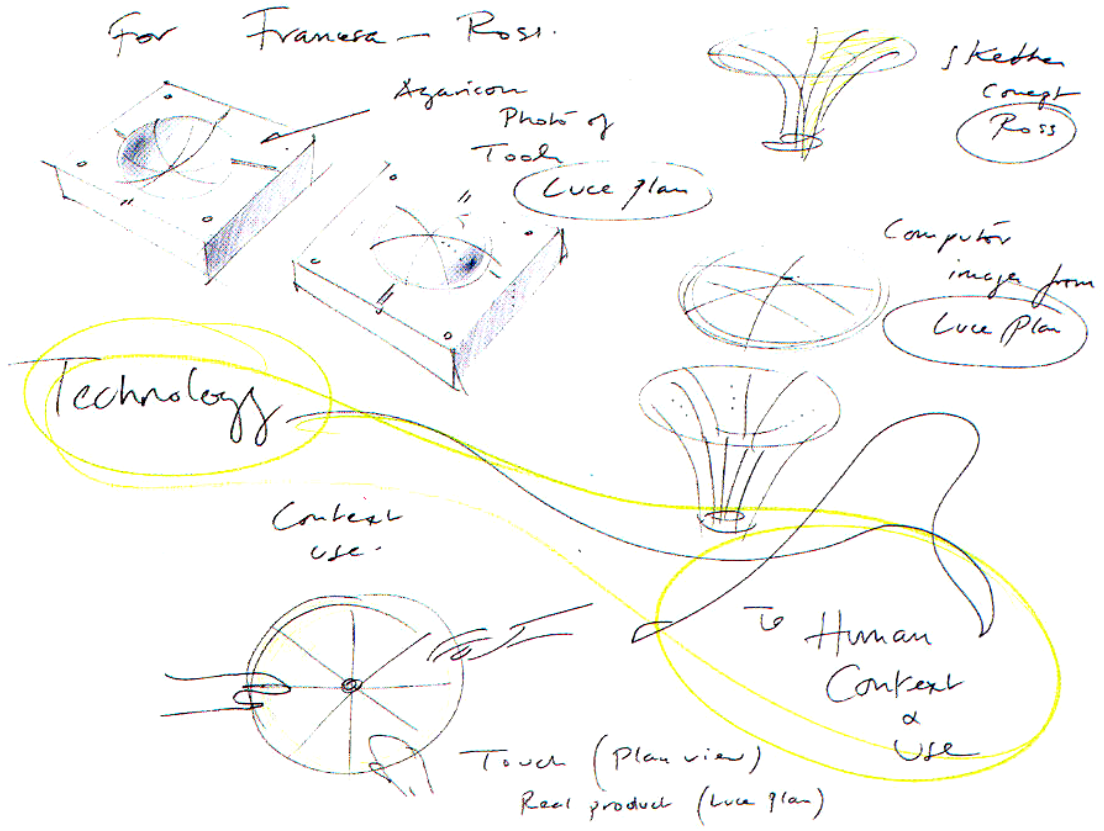 For Francesca - Ross.
Agaricon
Photo of
Tools
Luce plan
Sketches
Concept
Ross
Computor
images from
Luce Plan
Technology
Context
use.
To Human
Context
&
Use
Touch (Plan view)
Real product (Luce plan)